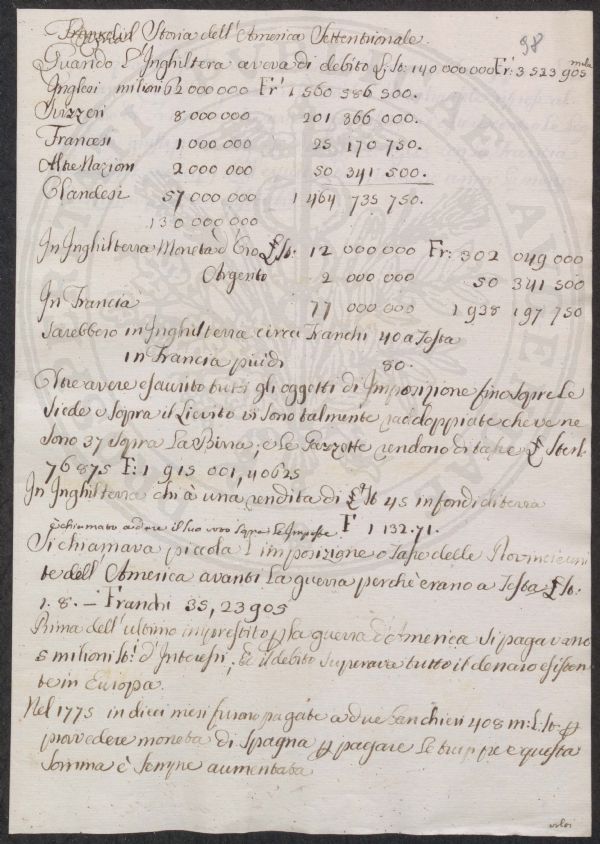 98
Storia dell'America Settentrionale.
Quando l'Inghiltera aveva di debito L: St: 140 000 000 Fr: 3 523 905 mila
Inglesi milioni 62 000 000 Fr 1 560 586 500.
Svizzeri 8 000 000 201 366 000.
Francesi 1 000 000 25 170 750.
Altre Nazioni 2 000 000 50 341 500.
Olandesi 57 000 000 1 464 735 750.
130 000 000
In Inghilterra Moneta d'Oro L St: 12 000 000 Fr: 302 049 000
Argento 2 000 000 50 341 500
In Francia 77 000 000 1 938 197 750
Sarebbero in Inghilterra circa Franchi 40 a Testa
in Francia più di 80.
Oltre avere esaurito tutti gli oggetti di Imposizione fino sopra le
Siede e sopra il Lievito vi sono talmente raddoppiate che ve ne
sono 37 sopra la Birra, e le Gazzette rendono di tasse L Sterl.
76 875 F: 1 915 001,40625
In Inghilterra chi à una rendita di L St 45 in fondi di terra
è chiamato a dare il suo voto sopra le Imposte F 1 132.71.
Si chiamava piccola l'imposizione o Tasse delle Provincie uni
te dell'America avanti la guerra perchè erano a Testa L St:
1. 8. — Franchi 35,23905
Prima dell'ultimo imprestito p la guerra d'America si pagavano
5 milioni St: d'Interessi, e il debito superava tutto il denaro esisten
te in Europa.
Nel 1775 in dieci mesi furono pagate a due banchieri 408 m: L. St: p
provvedere moneta di Spagna p pagare le truppe e questa
somma è sempre aumentata